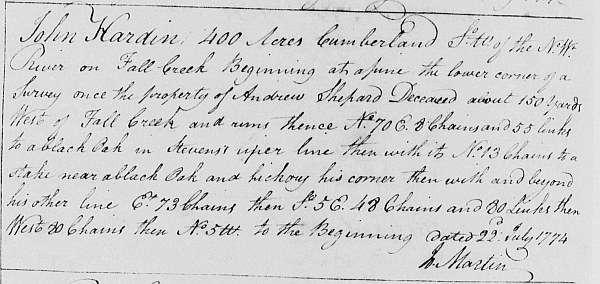 John Hardin, 400 Acres Cumberland So. W. of the No. We.
River on Fall Creek Beginning at a pine the lower corner of a
Survey once the property of Andrew Shepard Deceased about 150 Yards
West of Fall Creek and runs thence No. 70 E. 8 Chains and 55 links
to a black Oak in Stevens's uper line then with it No. 13 Chains to a
stake near a black Oak and hickory his corner then with and beyond
his other line Et. 73 Chains then So. 5 E. 48 Chains and 80 Links then
West 80 Chains then No. 5 W. to the Beginning dated 22d. July 1774
Martin